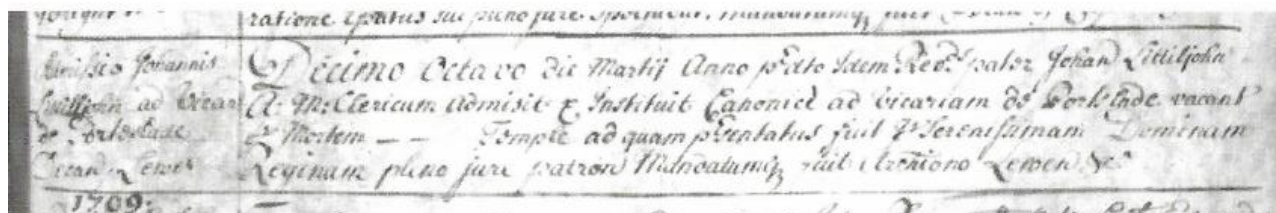 ratione
Admissio Johannis
Littlejohn ad Vicar
de Portslade
Decan Lewes
Decimo Octavo die Martij Anno p'dto Idem Rev'd pater Johan Littlejohn
A: M: Clericum Admisit & Instituit Canonice ad vicariam de Portslade vacant
p Mortem — — Temple ad quam p'sentatus fuit p Serenissimam Dominam
Reginam pleno jure patron Mandatumq fuit Archiono Lewen &c
1709.